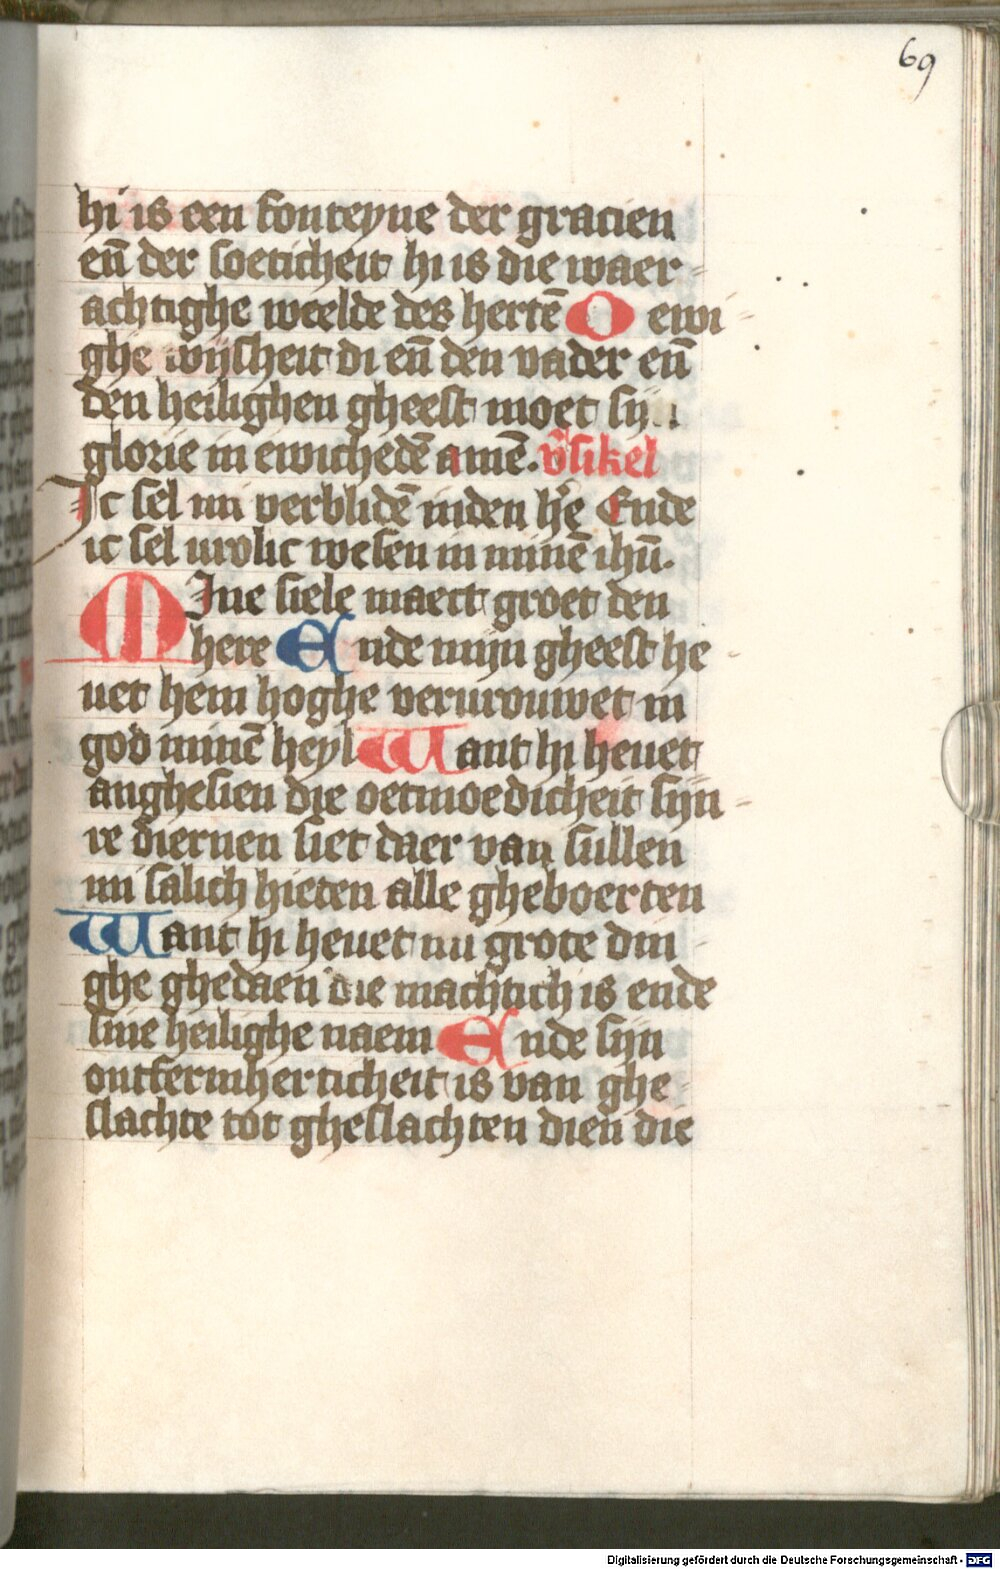 69
hi is een fonteyne der gracien
en̄ der soeticheit hi is die waer-
achtighe weelde des hertē O ewi-
ghe wijsheit di en̄ den vader en̄
den heilighen gheest moet sijn
glorie in ewichedē amē. v̄sikel
Ic sel mi verblidē inden hr̄e Ende
ic sel vrolic wesen in minē ihū.
MIne siele maect groet den
here Ende mijn gheest he-
uet hem hoghe verurouwet in
god minē heyl Want hi heuet
anghesien die oetmoedicheit sijn-
re diernen siet daer van sullen
mi salich hieten alle gheboerten
Want hi heuet mi grote din-
ghe ghedaen die machtich is ende
sine heilighe naem Ende sijn
ontfermherticheit is van ghe-
slachte tot gheslachten dien die
Digitalisierung gefördert durch die Deutsche Forschungsgemeinschaft - DFG